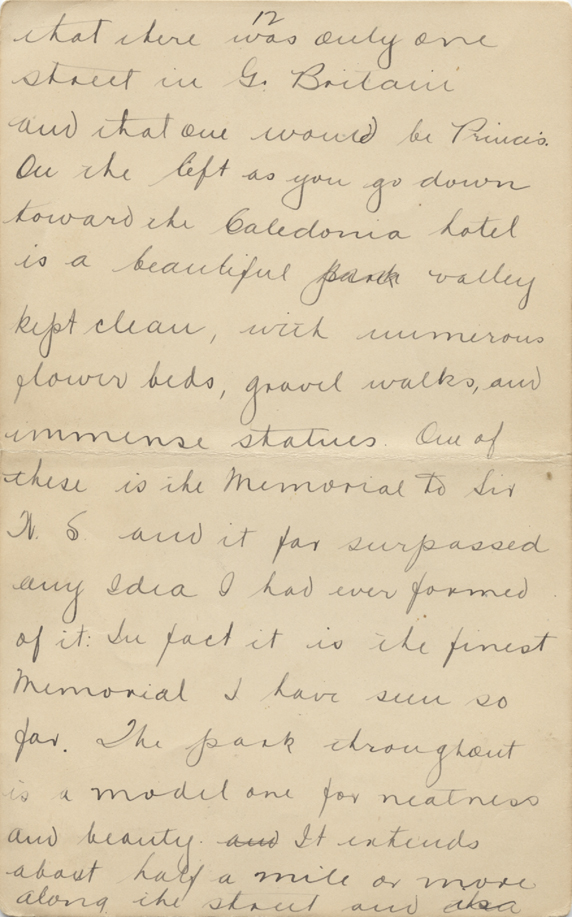 12
that there was only one
street in G. Britain
and that one would be Princis.
On the left as you go down
toward the Caledonia hotel
is a beautiful park valley
kept clean, with numerous
flower beds, gravel walks, and
immense statues. One of
these is the Memorial to Sir
W. S. and it far surpassed
any Idea I had ever formed
of it: In fact it is the finest
Memorial I have seen so
far. The park throughout
is a model one for neatness
and beauty. and It extends
about half a mile or more
along the street and